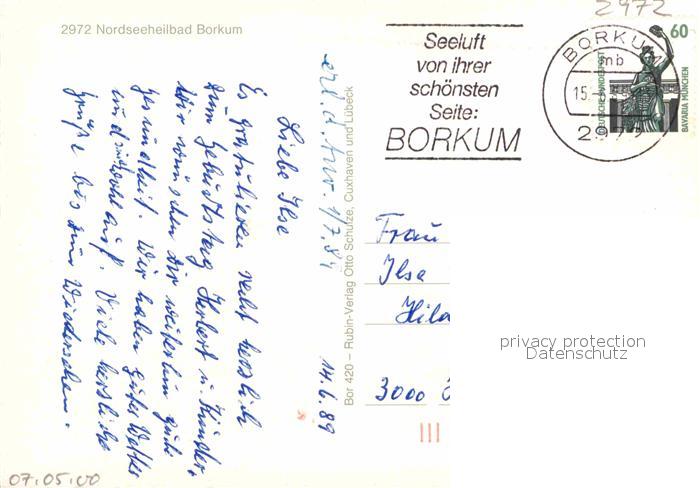 2972 Nordseeheilbad Borkum
2972
Seeluft
von ihrer
schönsten
Seite:
BORKUM
BORKUM
mb
15.
2972
60
DEUTSCHE BUNDESPOST
BAVARIA MÜNCHEN
14.6.89
Liebe Ilse
Es gratulieren recht herzlich
zum Geburtstag Herbert u. Kinder.
Wir wünschen Dir weiterhin gute
Gesundheit. Wir haben gutes Wetter
und sind wohlauf. Viele herzliche
Grüße bis zum Wiedersehen.
Bor 420 – Rubin-Verlag Otto Schulze, Cuxhaven und Lübeck
Frau
Ilse
Hila
3000
privacy protection
Datenschutz
07.05.00